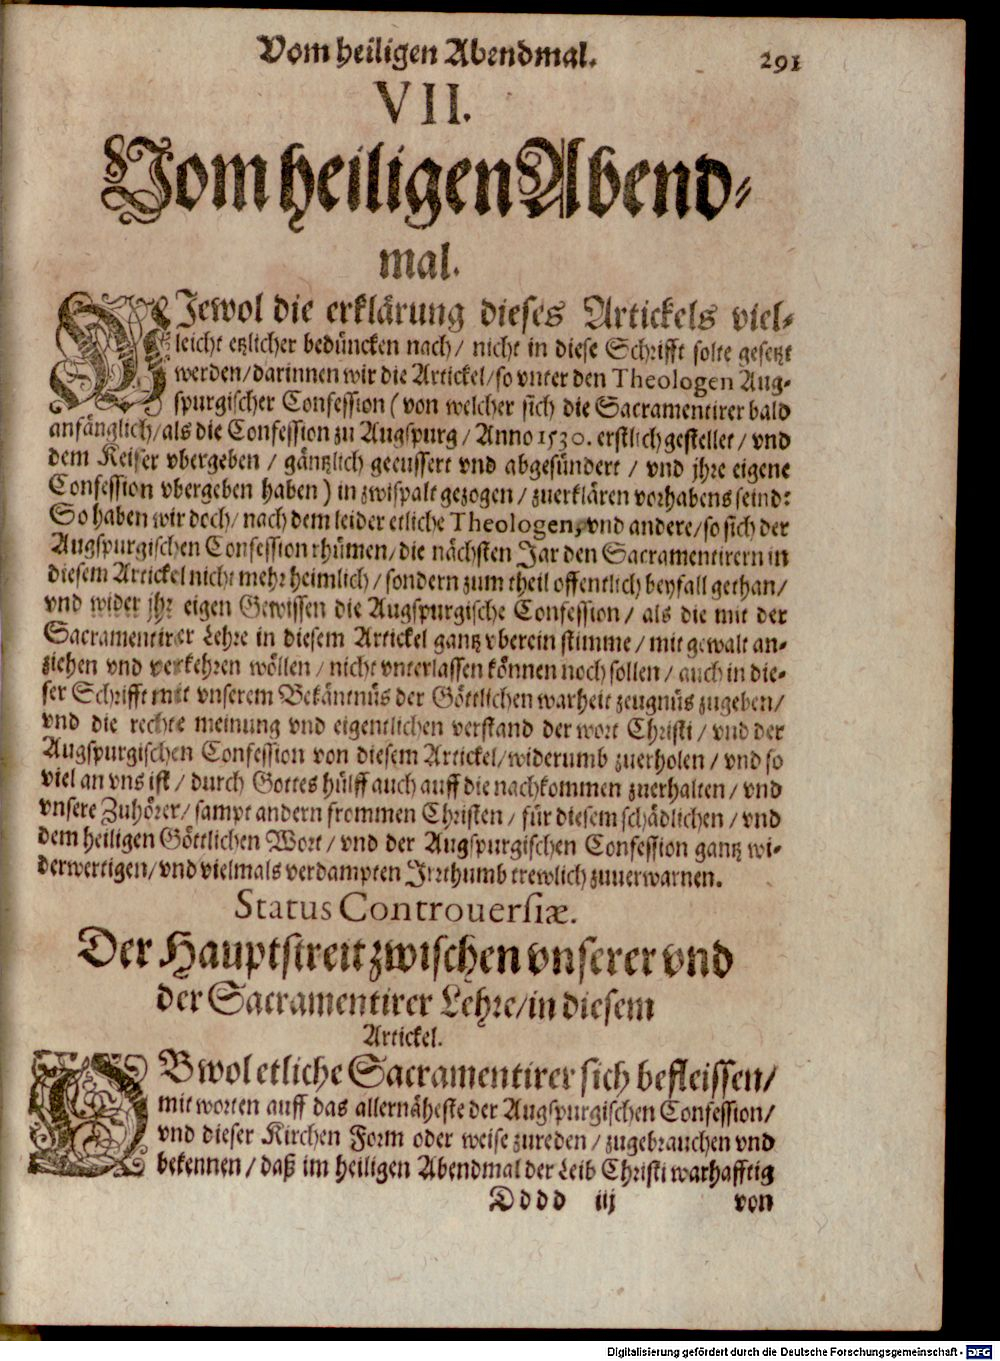 Vom heiligen Abendmal. 291
VII.
Vom heiligen Abend-
mal.
WJewol die erklärung dieses Artickels viel-
leicht etzlicher bedüncken nach/ nicht in diese Schrifft solte gesetzt
werden/ darinnen wir die Artickel/ so vnter den Theologen Aug-
spurgischer Confession ( von welcher sich die Sacramentirer bald
anfänglich/ als die Confession zu Augspurg/ Anno 1530. erstlich gestellet/ vnd
dem Keiser vbergeben/ gäntzlich geeussert vnd abgesündert/ vnd jhre eigene
Confession vbergeben haben ) in zwispalt gezogen/ zuerklären vorhabens seind:
So haben wir doch/ nach dem leider etliche Theologen, vnd andere/ so sich der
Augspurgischen Confession rhümen/ die nächsten Jar den Sacramentirern in
diesem Artickel nicht mehr heimlich/ sondern zum theil offentlich beyfall gethan/
vnd wider jhr eigen Gewissen die Augspurgische Confession/ als die mit der
Sacramentirer Lehre in diesem Artickel gantz vberein stimme/ mit gewalt an-
ziehen vnd verkehren wöllen/ nicht vnterlassen können noch sollen/ auch in die-
ser Schrifft mit vnserem Bekäntnüs der Göttlichen warheit zeugnüs zugeben/
vnd die rechte meinung vnd eigentlichen verstand der wort Christi/ vnd der
Augspurgischen Confession von diesem Artickel/ widerumb zuerholen/ vnd so
viel an vns ist/ durch Gottes hülff auch auff die nachkommen zuerhalten/ vnd
vnsere Zuhörer/ sampt andern frommen Christen/ für diesem schädlichen/ vnd
dem heiligen Göttlichen Wort/ vnd der Augspurgischen Confession gantz wi-
derwertigen/ vnd vielmals verdampten Irrthumb trewlich zuuerwarnen.
Status Controuersiæ.
Der Hauptstreit zwischen vnserer vnd
der Sacramentirer Lehre/ in diesem
Artickel.
OBwol etliche Sacramentirer sich befleissen/
mit worten auff das allernäheste der Augspurgischen Confession/
vnd dieser Kirchen Form oder weise zureden/ zugebrauchen vnd
bekennen/ daß im heiligen Abendmal der Leib Christi warhafftig
Dddd iij von
Digitalisierung gefördert durch die Deutsche Forschungsgemeinschaft - DFG